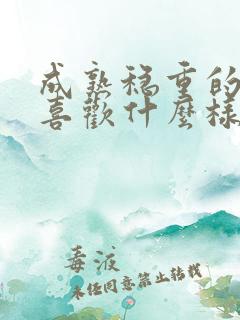 成熟穩重的
喜歡什麼樣
毒液
未经同意禁止转载